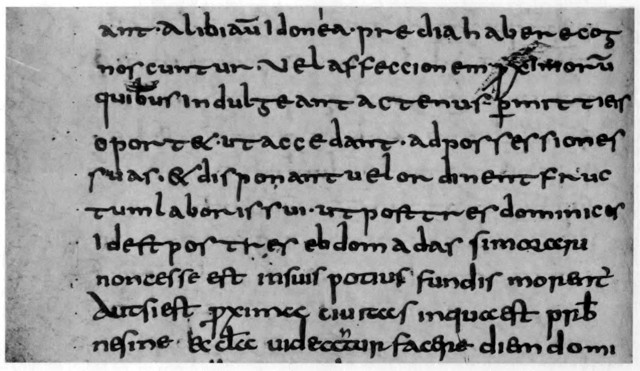 ant · alibi aū Idonea · predia habere cog
noscuntur · Vel affeccionem pximorū
quib'us Indulgeant actenus pmitti eis
oport& · ut accedant · ad possessiones
suas · & disponant uel ordinent fruc
tum laboris sui · ut post tres dominicos
Id est pos tres ebdomadas si
noncesse est insuis potius fundis morent
Aut si est pxima ciuitas inqua est
nesine uidentur facere diem domi